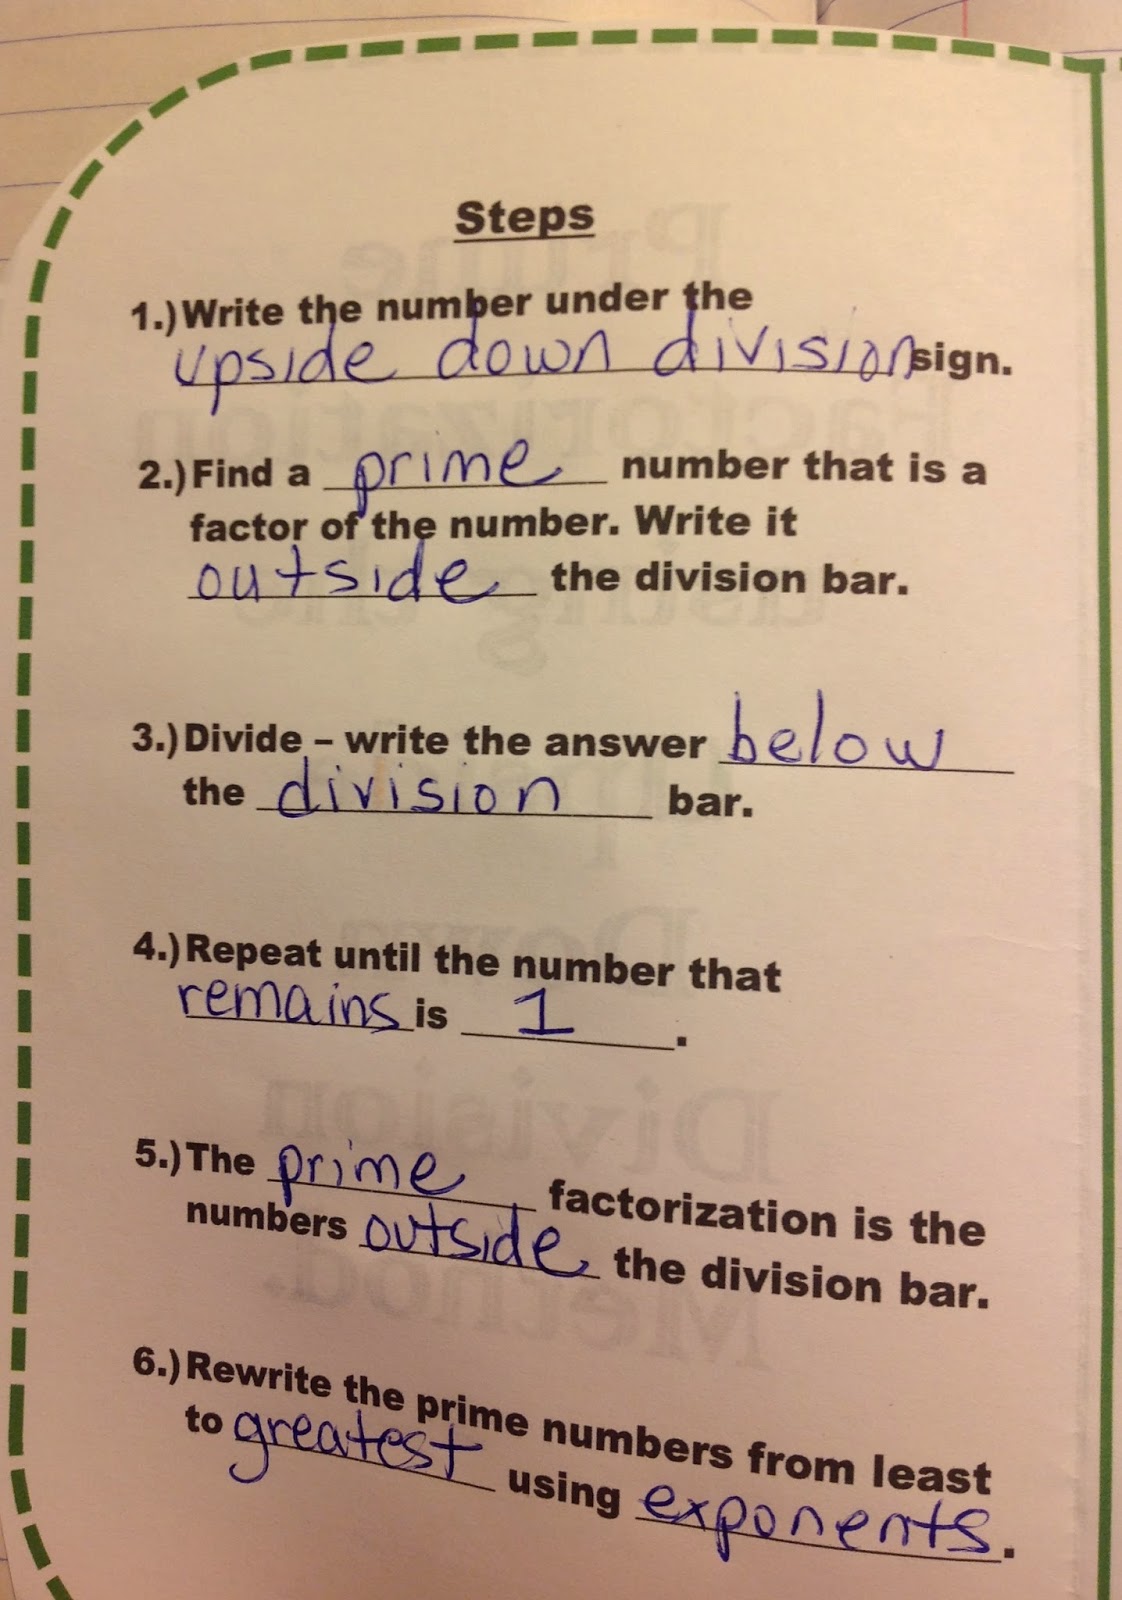 Steps
1.) Write the number under the
upside down division sign.
2.) Find a prime number that is a
factor of the number. Write it
outside the division bar.
3.) Divide – write the answer below
the division bar.
4.) Repeat until the number that
remains is 1.
5.) The prime factorization is the
numbers outside the division bar.
6.) Rewrite the prime numbers from least
to greatest using exponents.